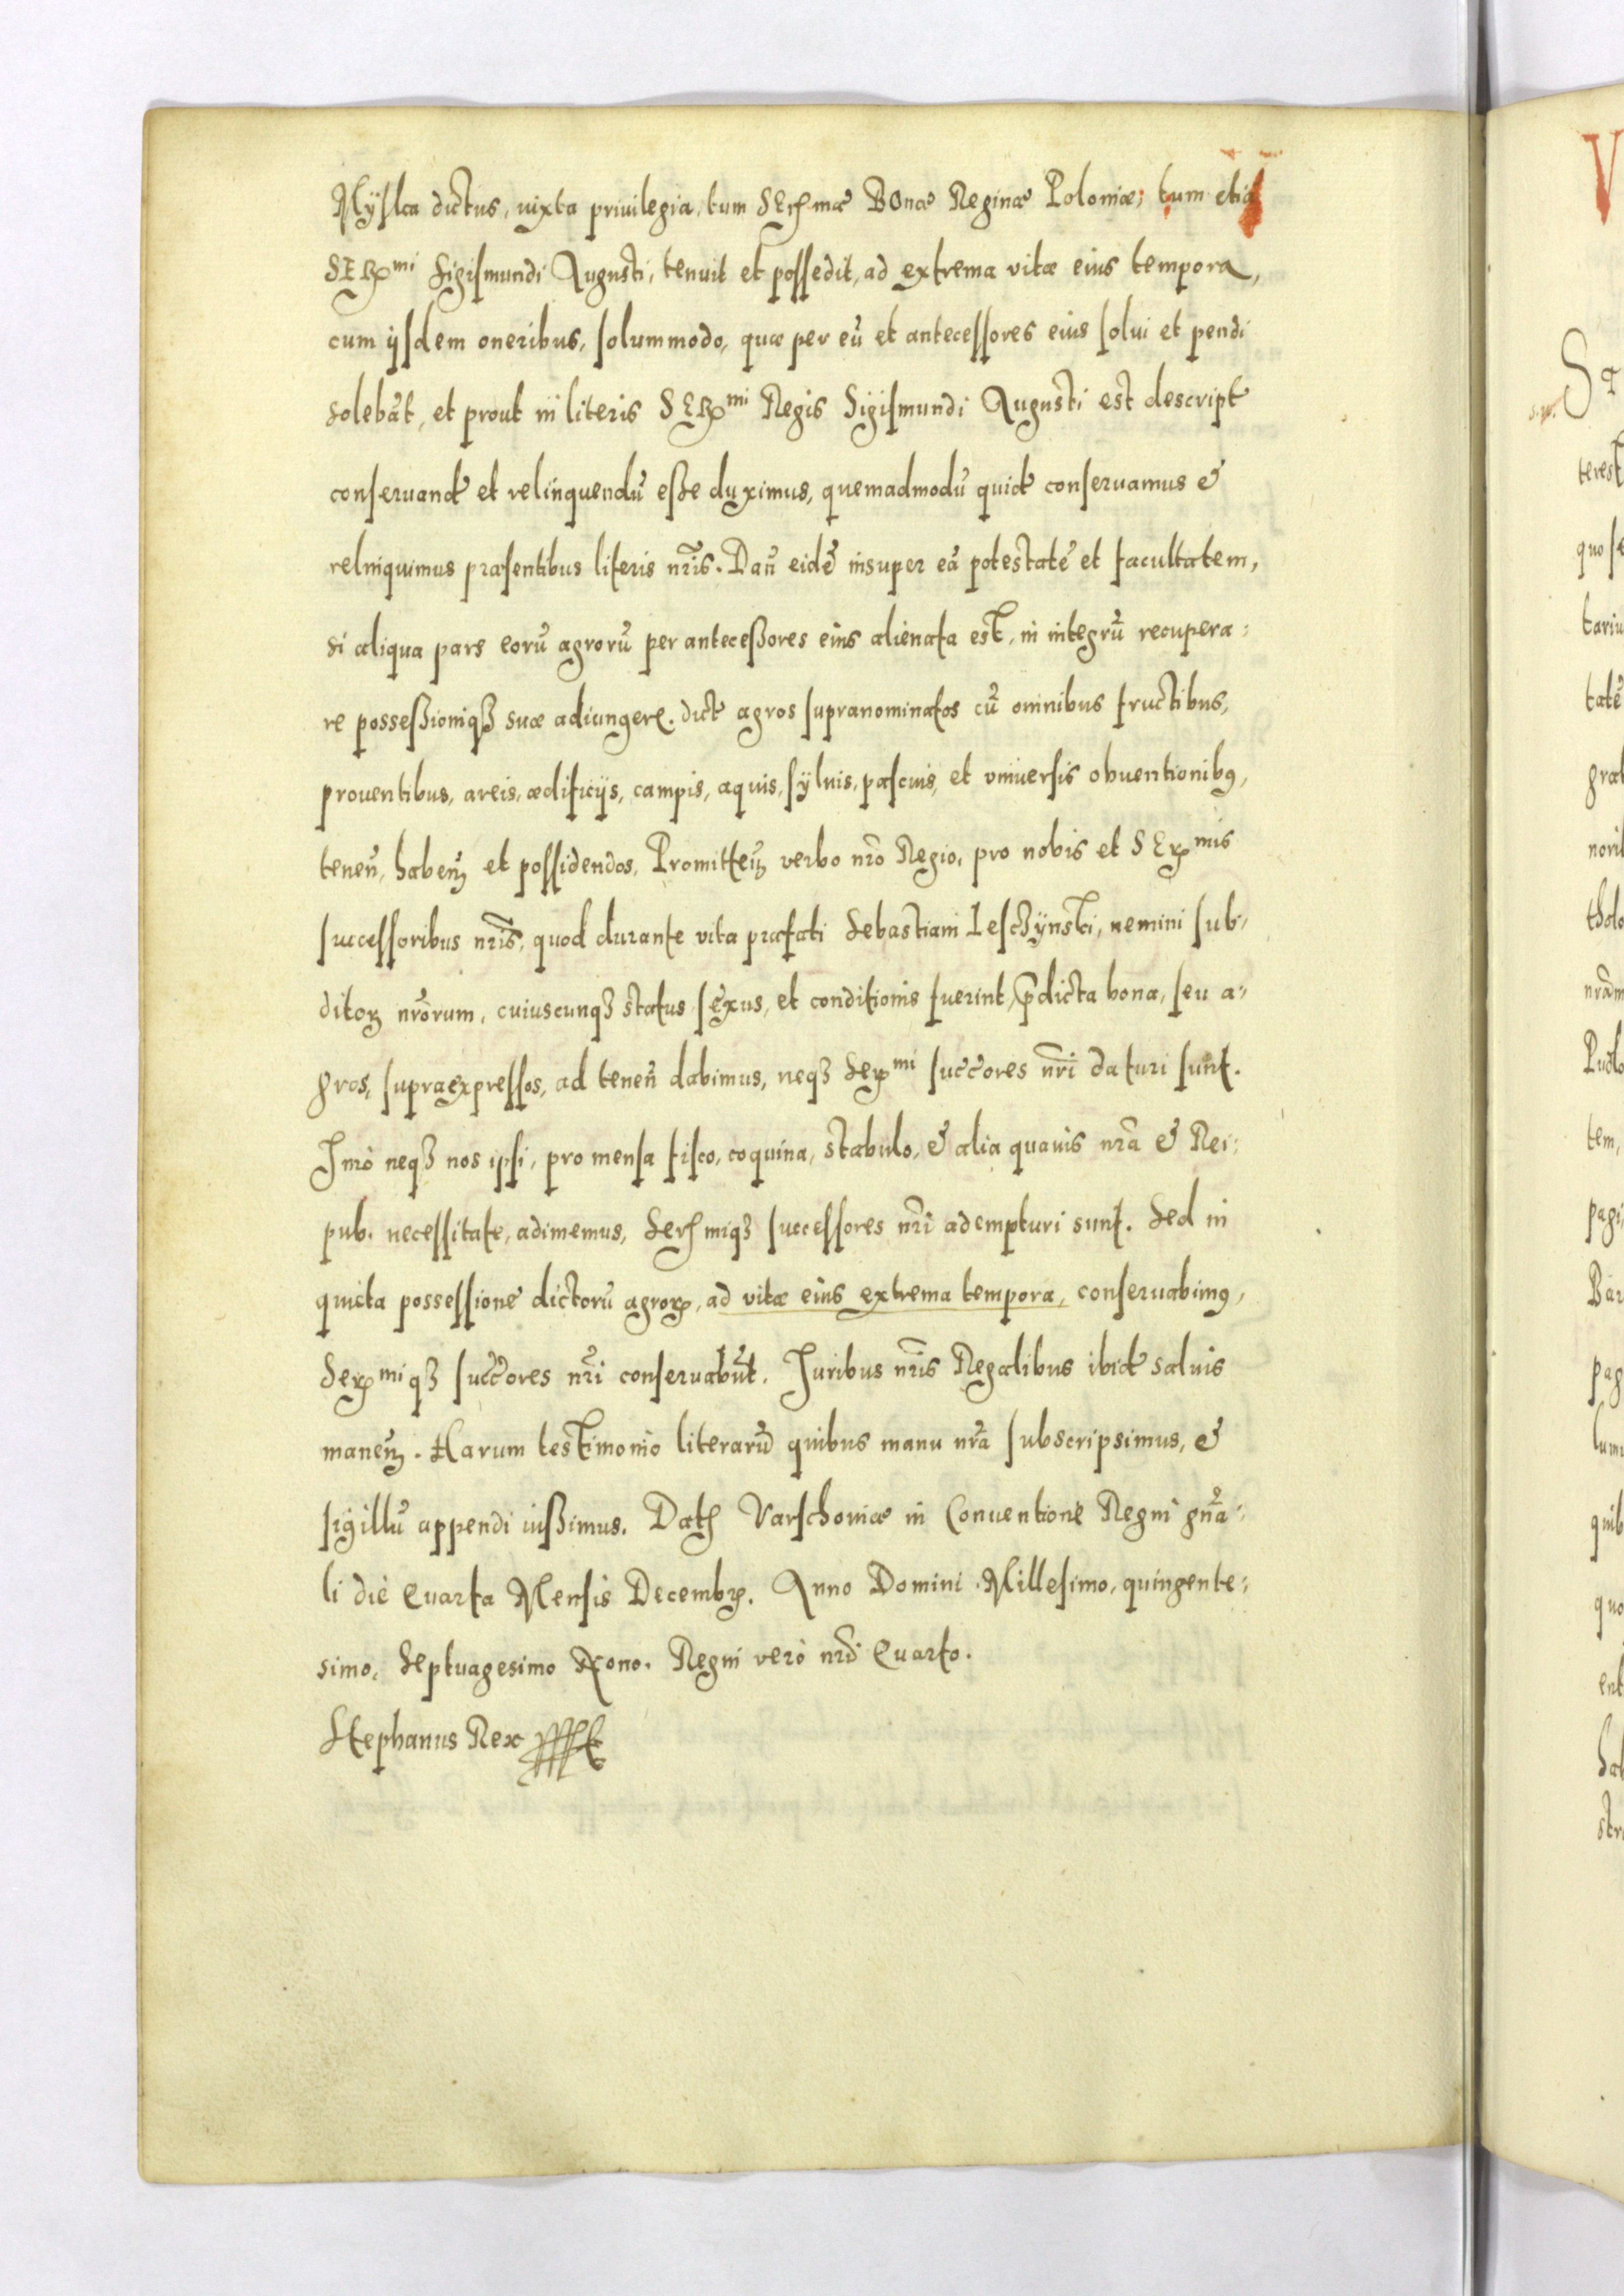 Mÿslca dictus, iuxta priuilegia, tum SErmæ BOnæ Reginæ Poloniæ; tum etiã
SERmi Sigismundi Augusti, tenuit et possedit, ad extrema vitæ eius tempora,
cum ijsdem oneribus, solummodo, quæ per eũ et antecessores eius solui et pendi
solebãt, et prout in literis SERmi Regis Sigismundi Augusti est descript
conseruand et relinquendũ esse duximus, quemadmodũ quid conseruamus &
relinquimus præsentibus literis nr̃is. Dañ eidẽ insuper eã potestatẽ et facultatem,
si aliqua pars eorũ agrorũ per anteceßores eius alienata est, in integrũ recupera:
re posseßioniqꝫ suæ adiungere. dict agros supranominatos cũ omnibus fructibus,
prouentibus, areis, ædificijs, campis, aquis, sÿluis, pascuis, et vniuersis obuentionibꝰ,
teneñ, habeñ et possidendos, Promitteñ verbo nr̃o Regio, pro nobis et SERmis
successoribus nr̃is, quod durante vita præfati Sebastiani Lesczÿnski, nemini sub-
ditoꝝ nr̃orum, cuiuscunqꝫ status sexus, et conditionis fuerint, p̃dicta bona, seu a-
gros, supraexpressos, ad teneñ dabimus, neqꝫ Sermi succ̃ores nr̃i daturi sunt.
Imò neqꝫ nos ipsi, pro mensa fisco, coquina, stabulo, & alia quauis nr̃a & Rei:
pub. necessitate, adimemus, Sermiqꝫ successores nr̃i adempturi sunt. Sed in
quieta possessionẽ dictorũ agroꝝ, ad vitæ eius extrema tempora, conseruabimꝰ,
Sermiqꝫ succ̃ores nr̃i conseruabũt. Iuribus nr̃is Regalibus ibid saluis
maneñ. Harum testimonio literarũ quibus manu nr̃a subscripsimus, &
sigillũ appendi iußimus. Dat Varschoviæ in Conuentione Regni gña-
li die Quarta Mensis Decembr. Anno Domini Millesimo, quingente:
simo, Septuagesimo Nono. Regni verò nr̃i Quarto.
Stephanus Rex